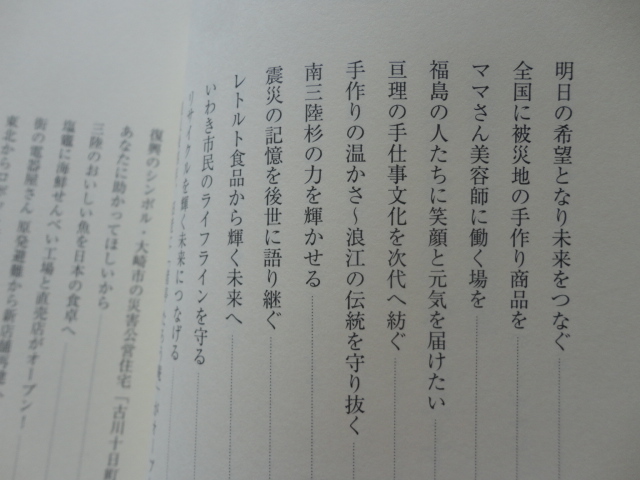 明日の希望となり未来をつなぐ
全国に被災地の手作り商品を
ママさん美容師に働く場を
福島の人たちに笑顔と元気を届けたい
亘理の手仕事文化を次代へ紡ぐ
手作りの温かさ～浪江の伝統を守り抜く
南三陸杉の力を輝かせる
震災の記憶を後世に語り継ぐ
レトルト食品から輝く未来へ
いわき市民のライフラインを守る
リサイクルを輝く未来につなげる
復興のシンボル・大崎市の災害公営住宅「古川十日町
あなたに助かってほしいから
三陸のおいしい魚を日本の食卓へ
塩竈に海鮮せんべい工場と直売店がオープン！
街の電器屋さん 原発避難から新店舗再建へ
東北から